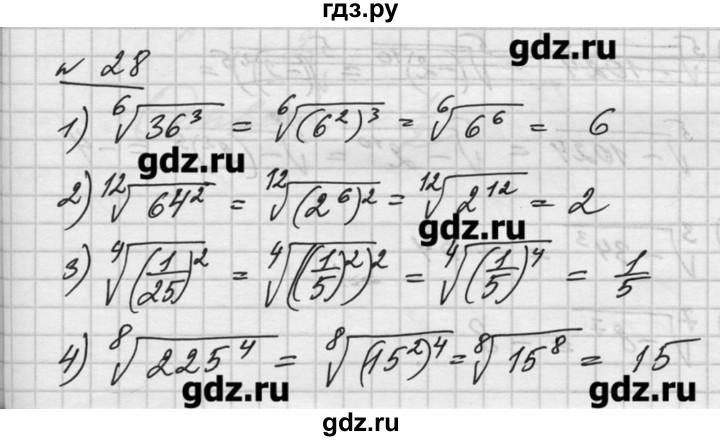 гдз.ру
gdz.ru
№ 28
1) ⁶√36³ = ⁶√(6²)³ = ⁶√6⁶ = 6
gdz.ru
2) ¹²√64² = ¹²√(2⁶)² = ¹²√2¹² = 2
gdz.ru
3) ⁴√(1/25)² = ⁴√((1/5)²)² = ⁴√(1/5)⁴ = 1/5
4) ⁸√225⁴ = ⁸√(15²)⁴ = ⁸√15⁸ = 15
gdz.ru gdz.ru
gdz.ru